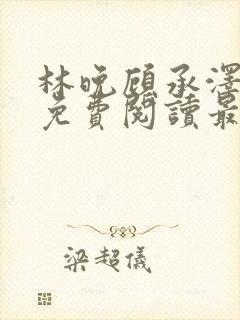 林晚顾承澤
免費閱讀最
梁超儀